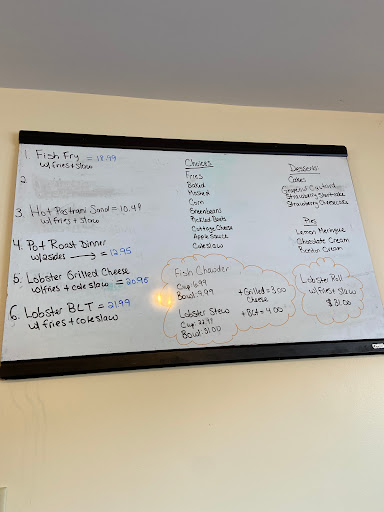 1. Fish Fry = 18.99
w/fries + slaw
2
3. Hot Pastrami Sand = 10.49
w/ fries + slaw
4. Pot Roast Dinner
w/2 sides → = 12.95
5. Lobster Grilled Cheese
w/fries + cole slaw = 20.95
6. Lobster BLT = 21.99
w/ fries + coleslaw
Choices
Fries
Baked
Mashed
Corn
Greenbeans
Pickled Beets
Cottage Cheese
Apple Sauce
Coleslaw
Desserts:
Cakes
Grapenut Custard
Strawberry Shortcake
Strawberry Cheesecake
Pies
Lemon Meringue
Chocolate Cream
Boston Cream
Fish Chowder
Cup: 6.99
Bowl: 9.99
+ Grilled = 3.00
Cheese
Lobster Stew
+ BLT = 4.00
Cup
Bowl: 31.00
Lobster Roll
w/fries + slaw
$31.00